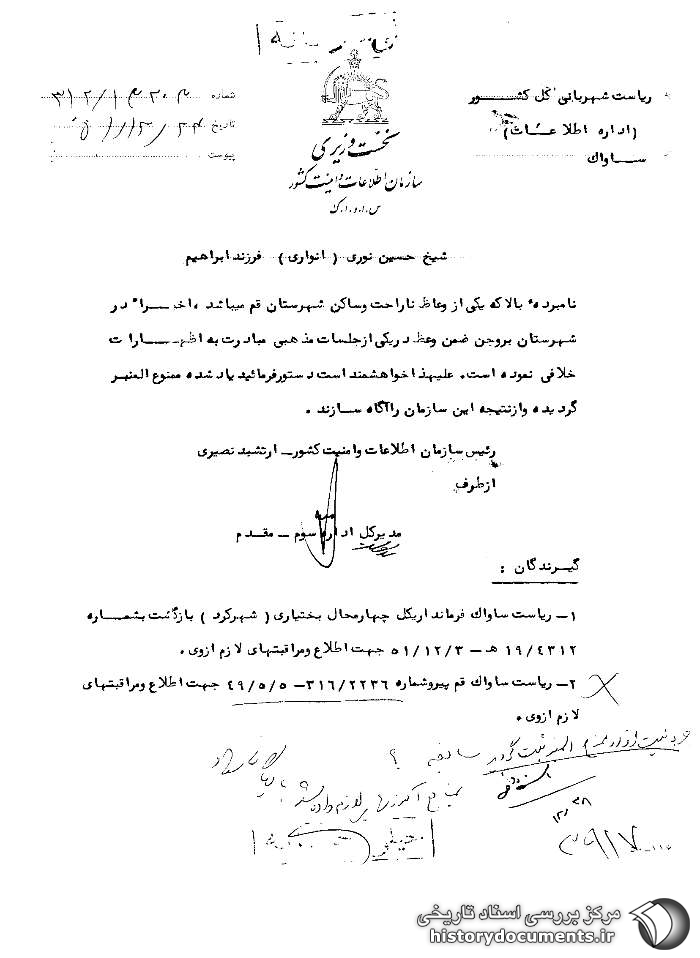 ریاست شهربانی کل کشور
(اداره اطلاعات)
ساواک
نخست وزیری
سازمان اطلاعات و امنیت کشور
س.ا.و.ا.ک
شماره ۳۱۲/۱۴۲۰۳
تاریخ
پیوست
شیخ حسین نوری (انواری) فرزند ابراهیم
نامبرده بالا که یکی از وعاظ ناراحت وساکن شهرستان قم میباشد، اخیراً در
شهرستان بروجن ضمن وعظ دریکی ازجلسات مذهبی مبادرت به اظهارات
خلافی نموده است. علیهذا خواهشمند است دستورفرمائید یاد شده ممنوع المنبر
گردیده وازنتیجه این سازمان راآگاه سازند.
رئیس سازمان اطلاعات وامنیت کشور_ ارتشبد نصیری
ازطرف
مدیرکل اداره سوم _ مقدم
گیرندگان :
۱_ ریاست ساواک فرمانداریکل چهارمحال بختیاری (شهرکرد) بازگشت بشماره
۱۹/۴۳۱۲ هـ _ ۵۱/۱۲/۳ جهت اطلاع ومراقبتهای لازم ازوی.
۲_ ریاست ساواک قم پیروشماره ۳۱۶/۲۲۳۶_ ۴۹/۵/۵ جهت اطلاع ومراقبتهای
لازم ازوی.
المنبر ثبت گردید سابقه ؟
لازم داده شد
مرکز بررسی اسناد تاریخی
historydocuments.ir